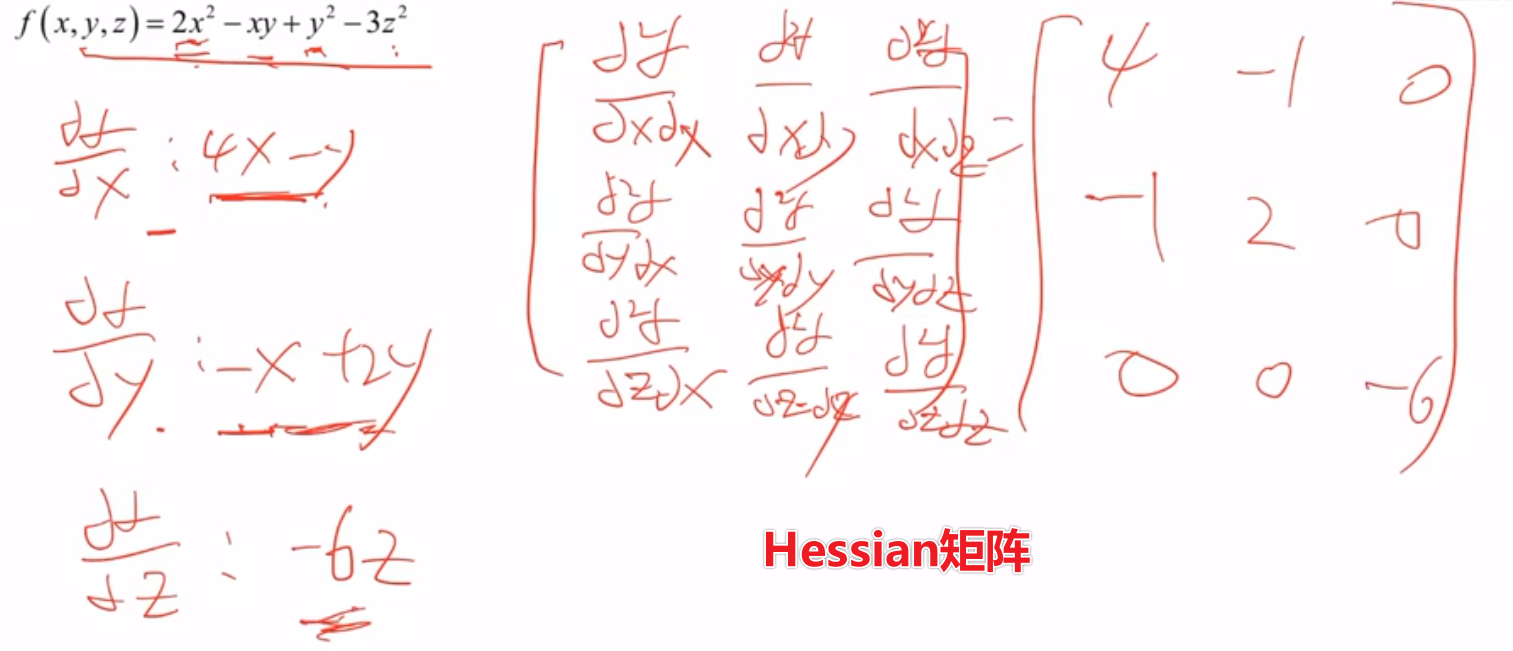 f(x,y,z)=2x²−xy+y²−3z²
df/dx : 4x−y
df/dy : −x+2y
df/dz : −6z
[ d²f/dxdx d²f/dxdy d²f/dxdz
d²f/dydx d²f/dydy d²f/dydz
d²f/dzdx d²f/dzdy d²f/dzdz ] =
[ 4 −1 0
−1 2 0
0 0 −6 ]
Hessian矩阵